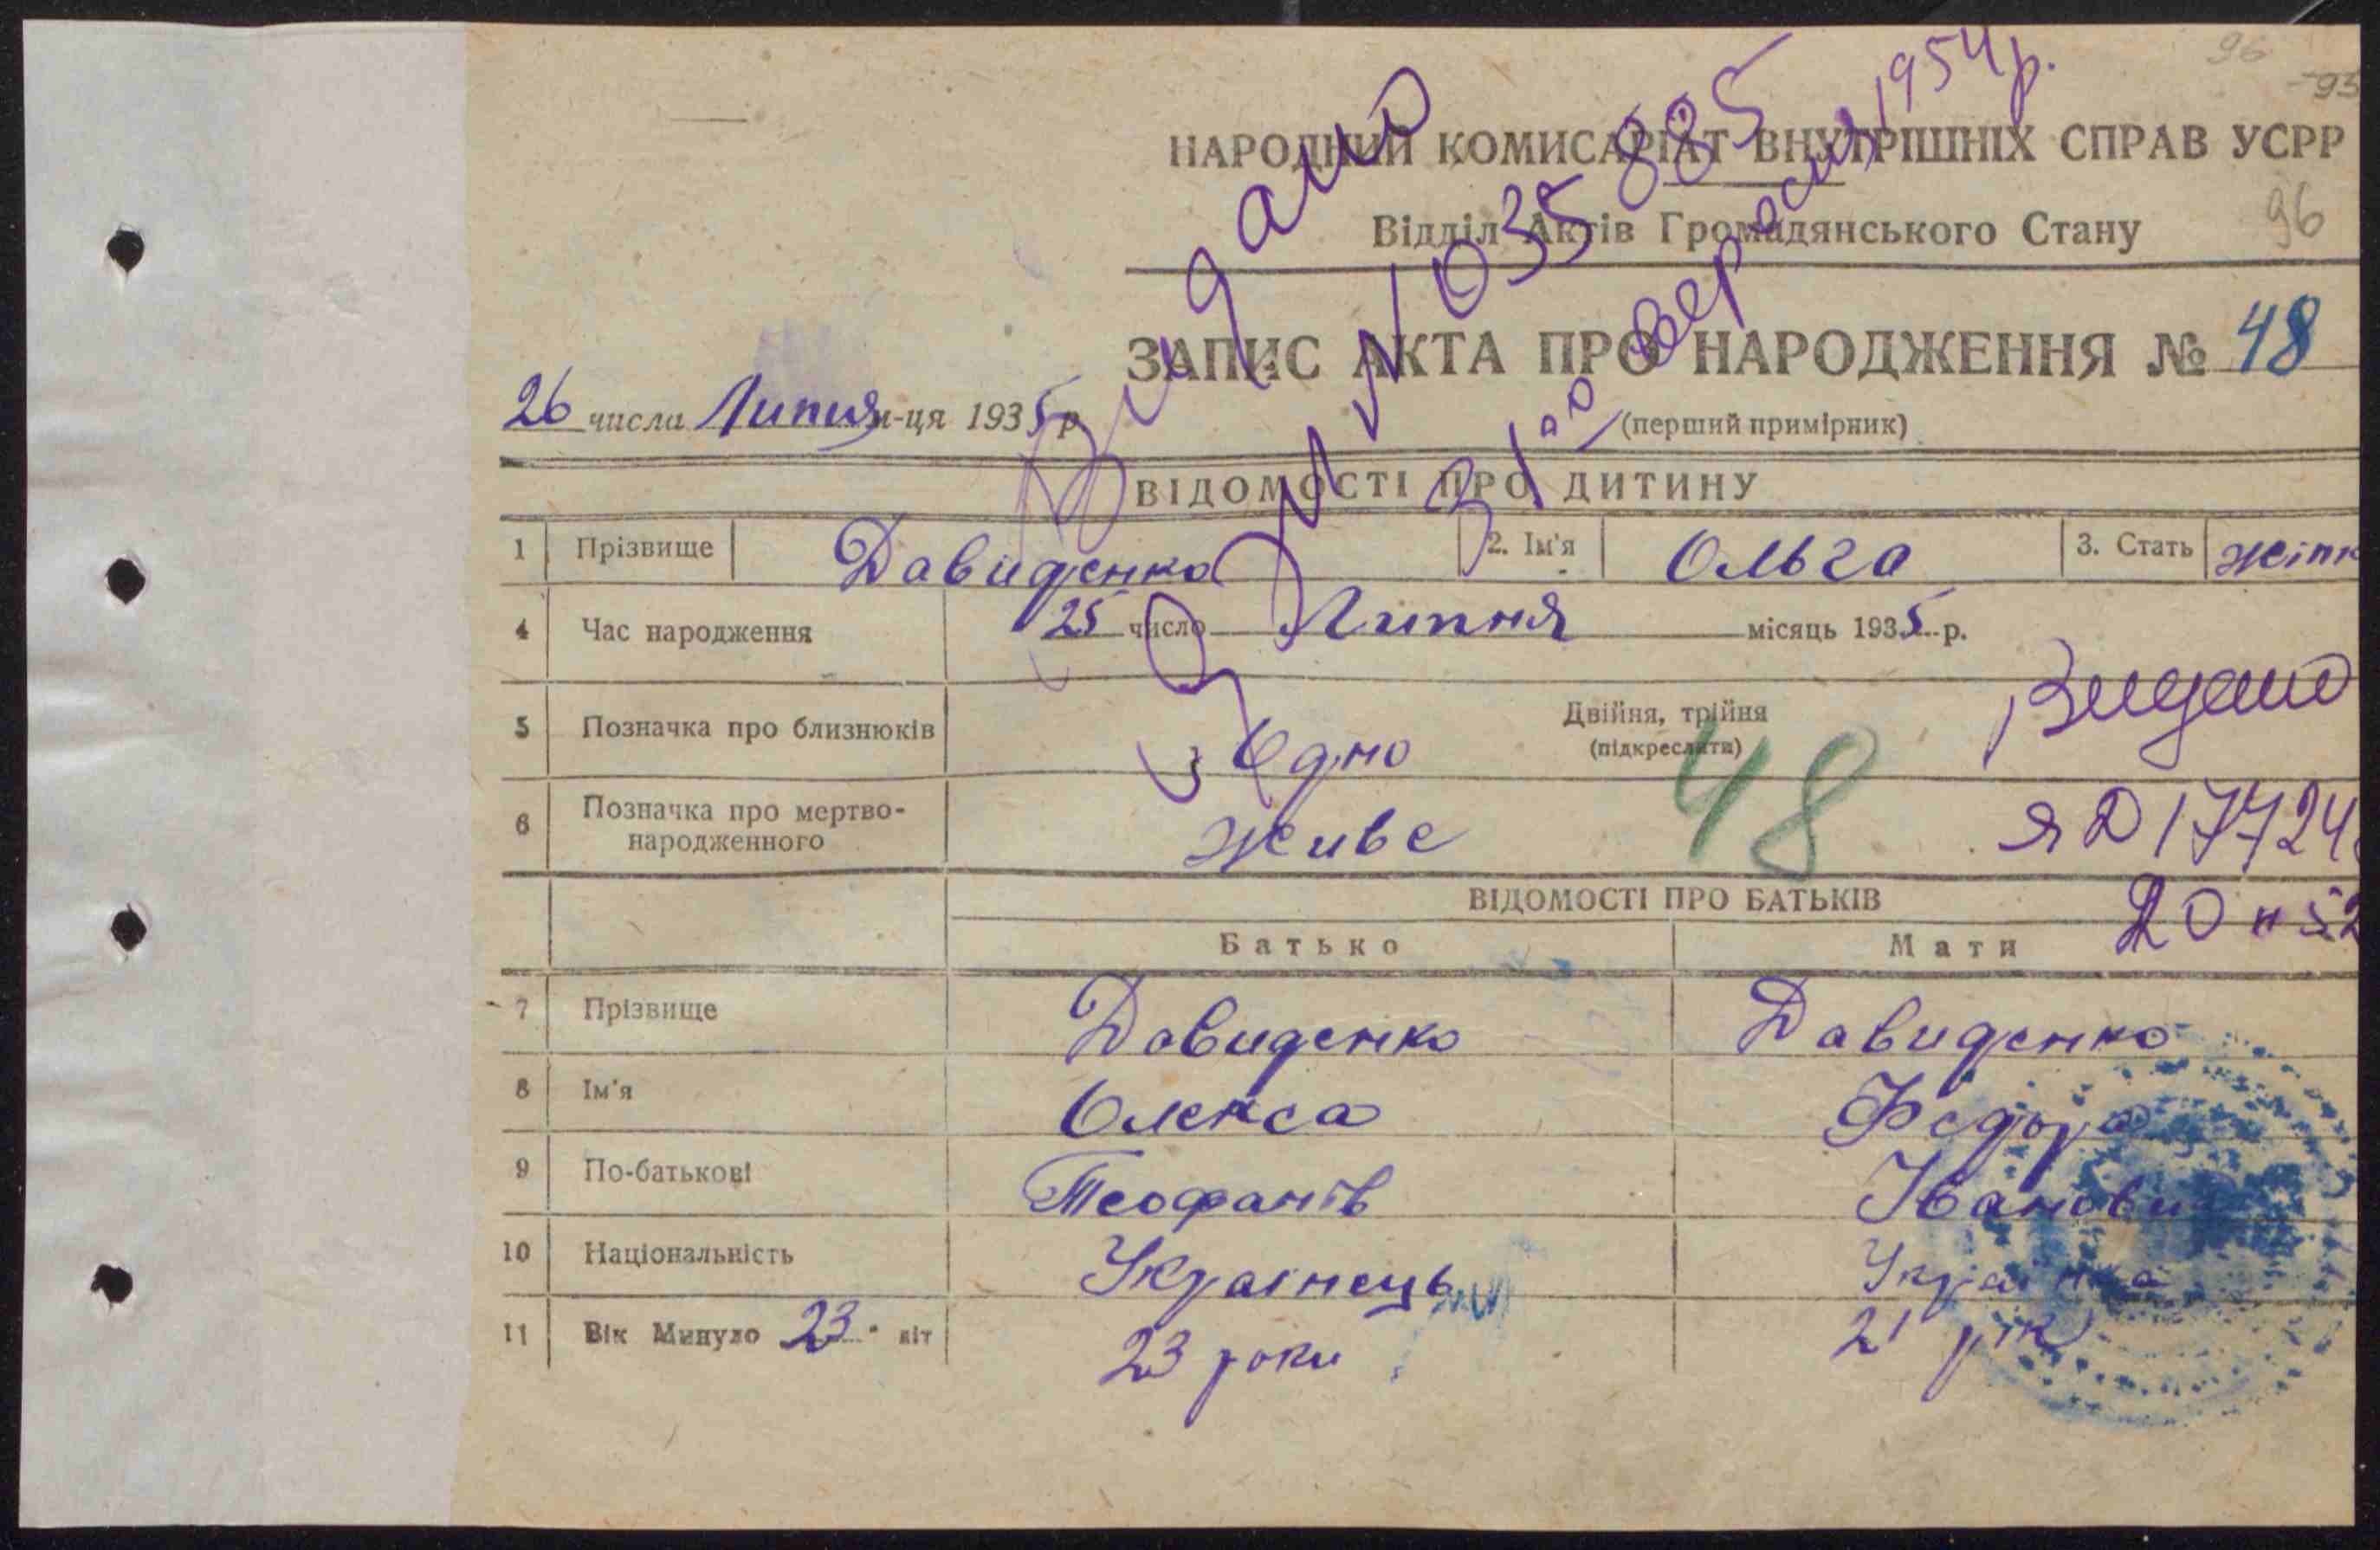 96
-93
НАРОДНИЙ КОМИСАРІАТ ВНУТРІШНІХ СПРАВ УСРР
Відділ Актів Громадянського Стану
96
ЗАПИС АКТА ПРО НАРОДЖЕННЯ № 48
26 числа Липня м-ця 1935 р.
(перший примірник)
Видано
№ 035885
1954 р.
ВІДОМОСТІ ПРО ДИТИНУ
1 Прізвище Давиденко 2. Ім'я Ольга 3. Стать жіноч
4 Час народження 25 число Липня місяць 1935 р.
5 Позначка про близнюків Одно Двійня, трійня
(підкреслити)
Видано
6 Позначка про мертво-
народженного Живе
48
ЯД 17724
ВІДОМОСТІ ПРО БАТЬКІВ
Батько Мати
7 Прізвище Давиденко Давиденко
8 Ім'я Олекса Федора
9 По-батькові Теофанів
10 Національність Українець Українка
11 Вік Минуло 23 літ 23 роки 21 рік